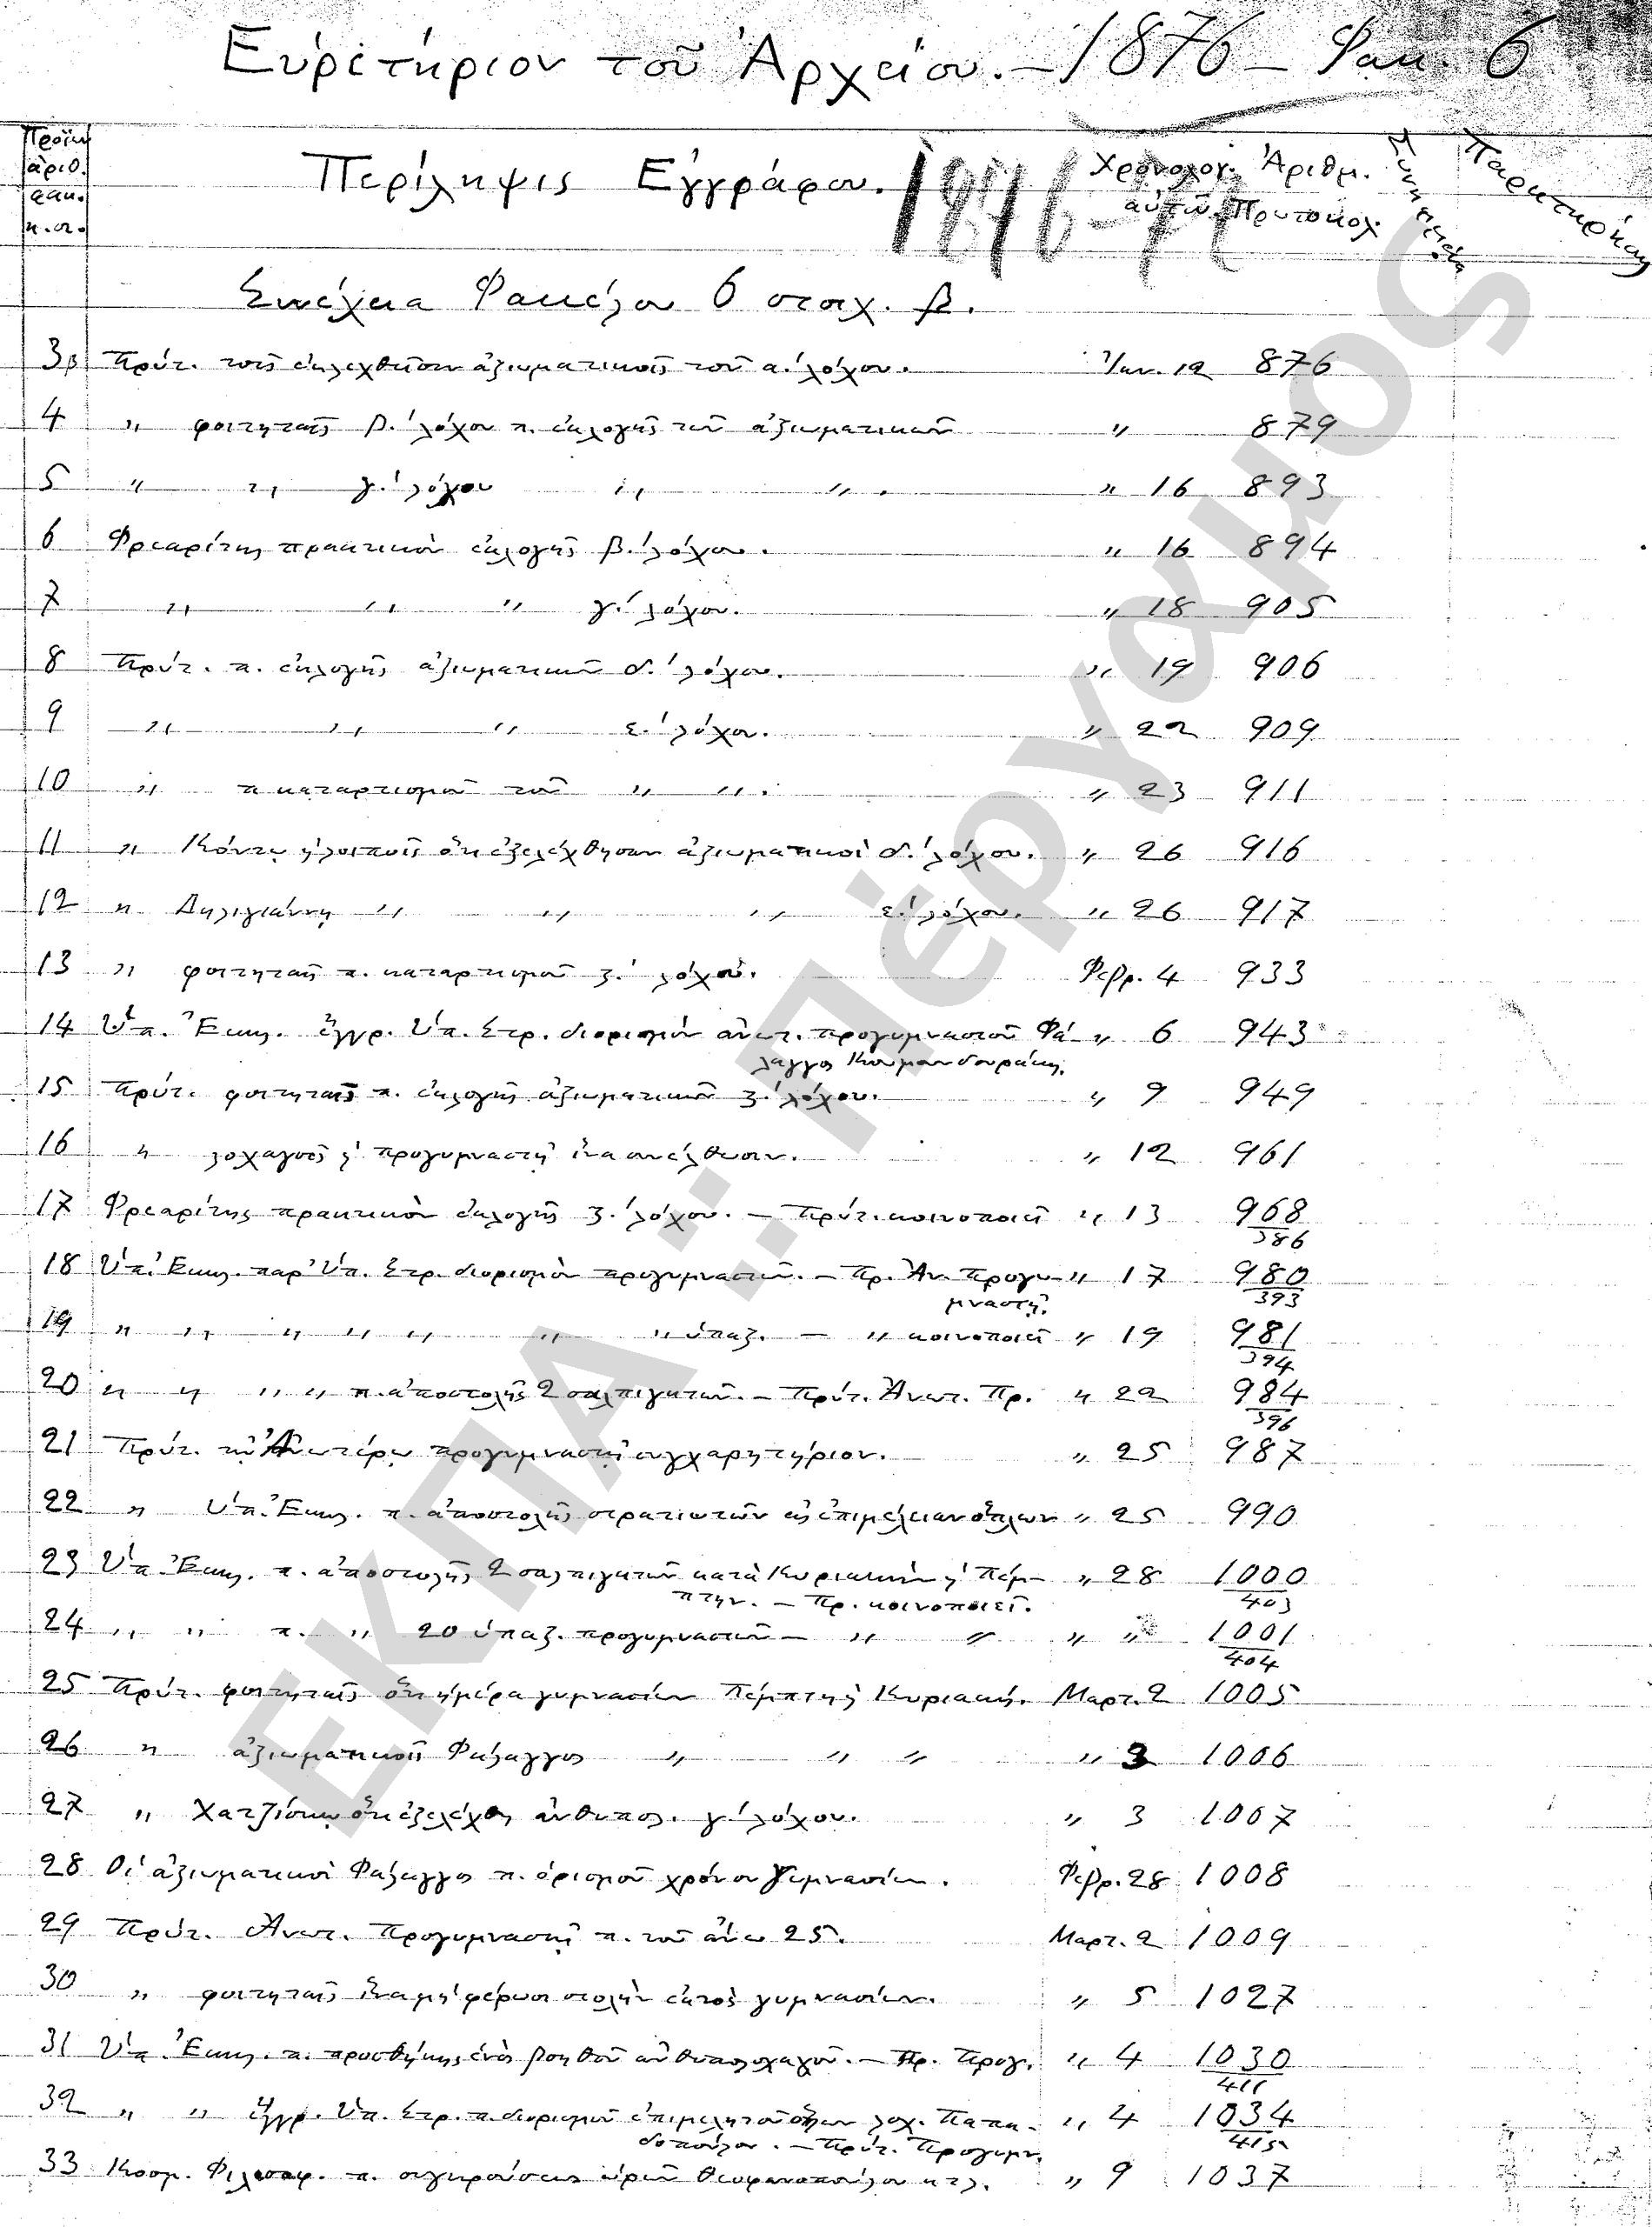 Εὑρετήριον τοῦ Ἀρχείου. – 1876 – Φακ. 6
Προσ. ἀριθ. φακ. κ.σ.
Περίληψις Ἐγγράφου. 1876-77
Χρονολογ. Ἀριθμ.
αὐτῶν Πρωτοκολ.
Συνέχεια Φακέλου 6 στοιχ. β.
3β Πρύτ. τοῖς ἐκλεχθεῖσιν ἀξιωματικοῖς τοῦ α.' λόχου. Ἰαν. 12 876
4 " φοιτηταῖς β.' λόχου π. ἐκλογῆς τῶν ἀξιωματικῶν " 879
5 " " γ.' λόχου " " " 16 893
6 Φρεαρίτης πρακτικὸν ἐκλογῆς β.' λόχου. " 16 894
7 " " " γ.' λόχου. " 18 905
8 Πρύτ. π. ἐκλογῆς ἀξιωματικῶν δ.' λόχου. " 19 906
9 " " " ε.' λόχου. " 22 909
10 " π καταρτισμοῦ τοῦ " " . " 23 911
11 " Κόντῳ ἢ λοιποῖς ὅτι ἐξελέχθησαν ἀξιωματικοὶ δ.' λόχου. " 26 916
12 " Δηλιγιάννη " " " ε.' λόχου. " 26 917
13 " φοιτηταῖς π. καταρτισμοῦ ζ.' λόχου. Φεβρ. 4 933
14 Ὑπ. Ἐκκλ. ἔγγρ. Ὑπ. Στρ. διορισμὸν ἀνωτ. προγυμναστοῦ Φά- " 6 943
λαγγος Κουμανδουράκη.
15 Πρύτ. φοιτηταῖς π. ἐκλογῆς ἀξιωματικῶν ζ.' λόχου. " 9 949
16 " λοχαγοῖς ἢ προγυμναστῇ ἵνα συνέλθωσιν. " 12 961
17 Φρεαρίτης πρακτικὸν ἐκλογῆς ζ.' λόχου. – Πρύτ. κοινοποιεῖ " 13 968
386
18 Ὑπ. Ἐκκλ. παρ' Ὑπ. Στρ. διορισμὸν προγυμναστῶν. – Πρ. Ἀν. Προγυ- " 17 980
μναστῇ. 393
19 " " " " " " " ὑπαξ. – " κοινοποιεῖ " 19 981
394
20 " " " " π. ἀποστολῆς 2 σαλπιγκτῶν. – Πρύτ. Ἀνωτ. Πρ. " 22 984
396
21 Πρύτ. τῷ Ἀνωτέρῳ προγυμναστῇ συγχαρητήριον. " 25 987
22 " Ὑπ. Ἐκκλ. π. ἀποστολῆς στρατιωτῶν εἰς ἐπιμέλειαν ὅπλων " 25 990
23 Ὑπ Ἐκκλ. π. ἀποστολῆς 2 σαλπιγκτῶν κατὰ Κυριακὴν ἢ Πέμ- " 28 1000
πτην. – Πρ. κοινοποιεῖ. 403
24 " " π. " 20 ὑπαξ. προγυμναστῶν – " " " " 1001
404
25 Πρύτ. φοιτηταῖς ὅτι ἡμέρα γυμνασίων Πέμπτη ἢ Κυριακή. Μαρτ. 2 1005
26 " ἀξιωματικοῖς Φάλαγγος " " " " 3 1006
27 " Χατζίσκῳ ὅτι ἐξελέχθη ἀνθυπολ. γ.' λόχου. " 3 1007
28 Οἱ ἀξιωματικοὶ Φάλαγγος π. ὁρισμοῦ χρόνου γυμνασίων. Φεβρ. 28 1008
29 Πρύτ. Ἀνωτ. Προγυμναστῇ π. τοῦ ἄνω 25. Μαρτ. 2 1009
30 " φοιτηταῖς ἵνα μὴ φέρωσι στολὴν ἐκτὸς γυμνασίων. " 5 1027
31 Ὑπ. Ἐκκλ. π. προσθήκης ἑνὸς βοηθοῦ ἀνθυπολοχαγοῦ. – Πρ. Προγ. " 4 1030
411
32 " " ἔγγρ. Ὑπ. Στρ. π. διορισμοῦ ἐπιμελητοῦ ὅπλων λοχ. Παπα- " 4 1034
δοπούλου. – Πρύτ. Προγυμν. 415
33 Κοσμ. Φιλοσοφ. π. συγκρούσεως Θεοφανοπούλου κτλ. " 9 1037
ΕΚΠΑ :: Πέργαμος